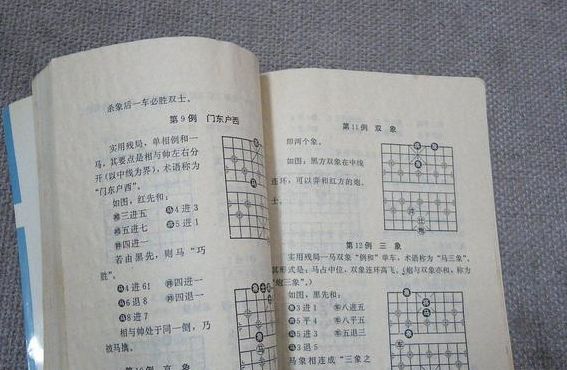 杀象后一车必胜双士。
第9例 门东户西
实用残局,单相例和一
马,其要点是相与帅左右分
开(以中线为界),术语称为
“门东户西”。
如图,红先和:
进5 马4进3
五进七 5进1
四进一
若由黑先,则马“巧
胜”。
马4进6! 四进一
马6退8 四退一
马8进7
相与帅处于同一侧,乃
被马擒。
第11例 双象
即两个象。
如图:黑方双象在中线
连环,可以弈和红方的炮
士。
第12例 三象
实用残局一马双象“例和”单车,术语称为“马三象”。
其形式是:马占中位,双象连环高飞。(炮与双象亦和,称为
“炮三象”。)
如图,黑先和:
3进1 车八进五
5平4 车八平五
3进5 车五退三
马3退5
马象相连成“三象之